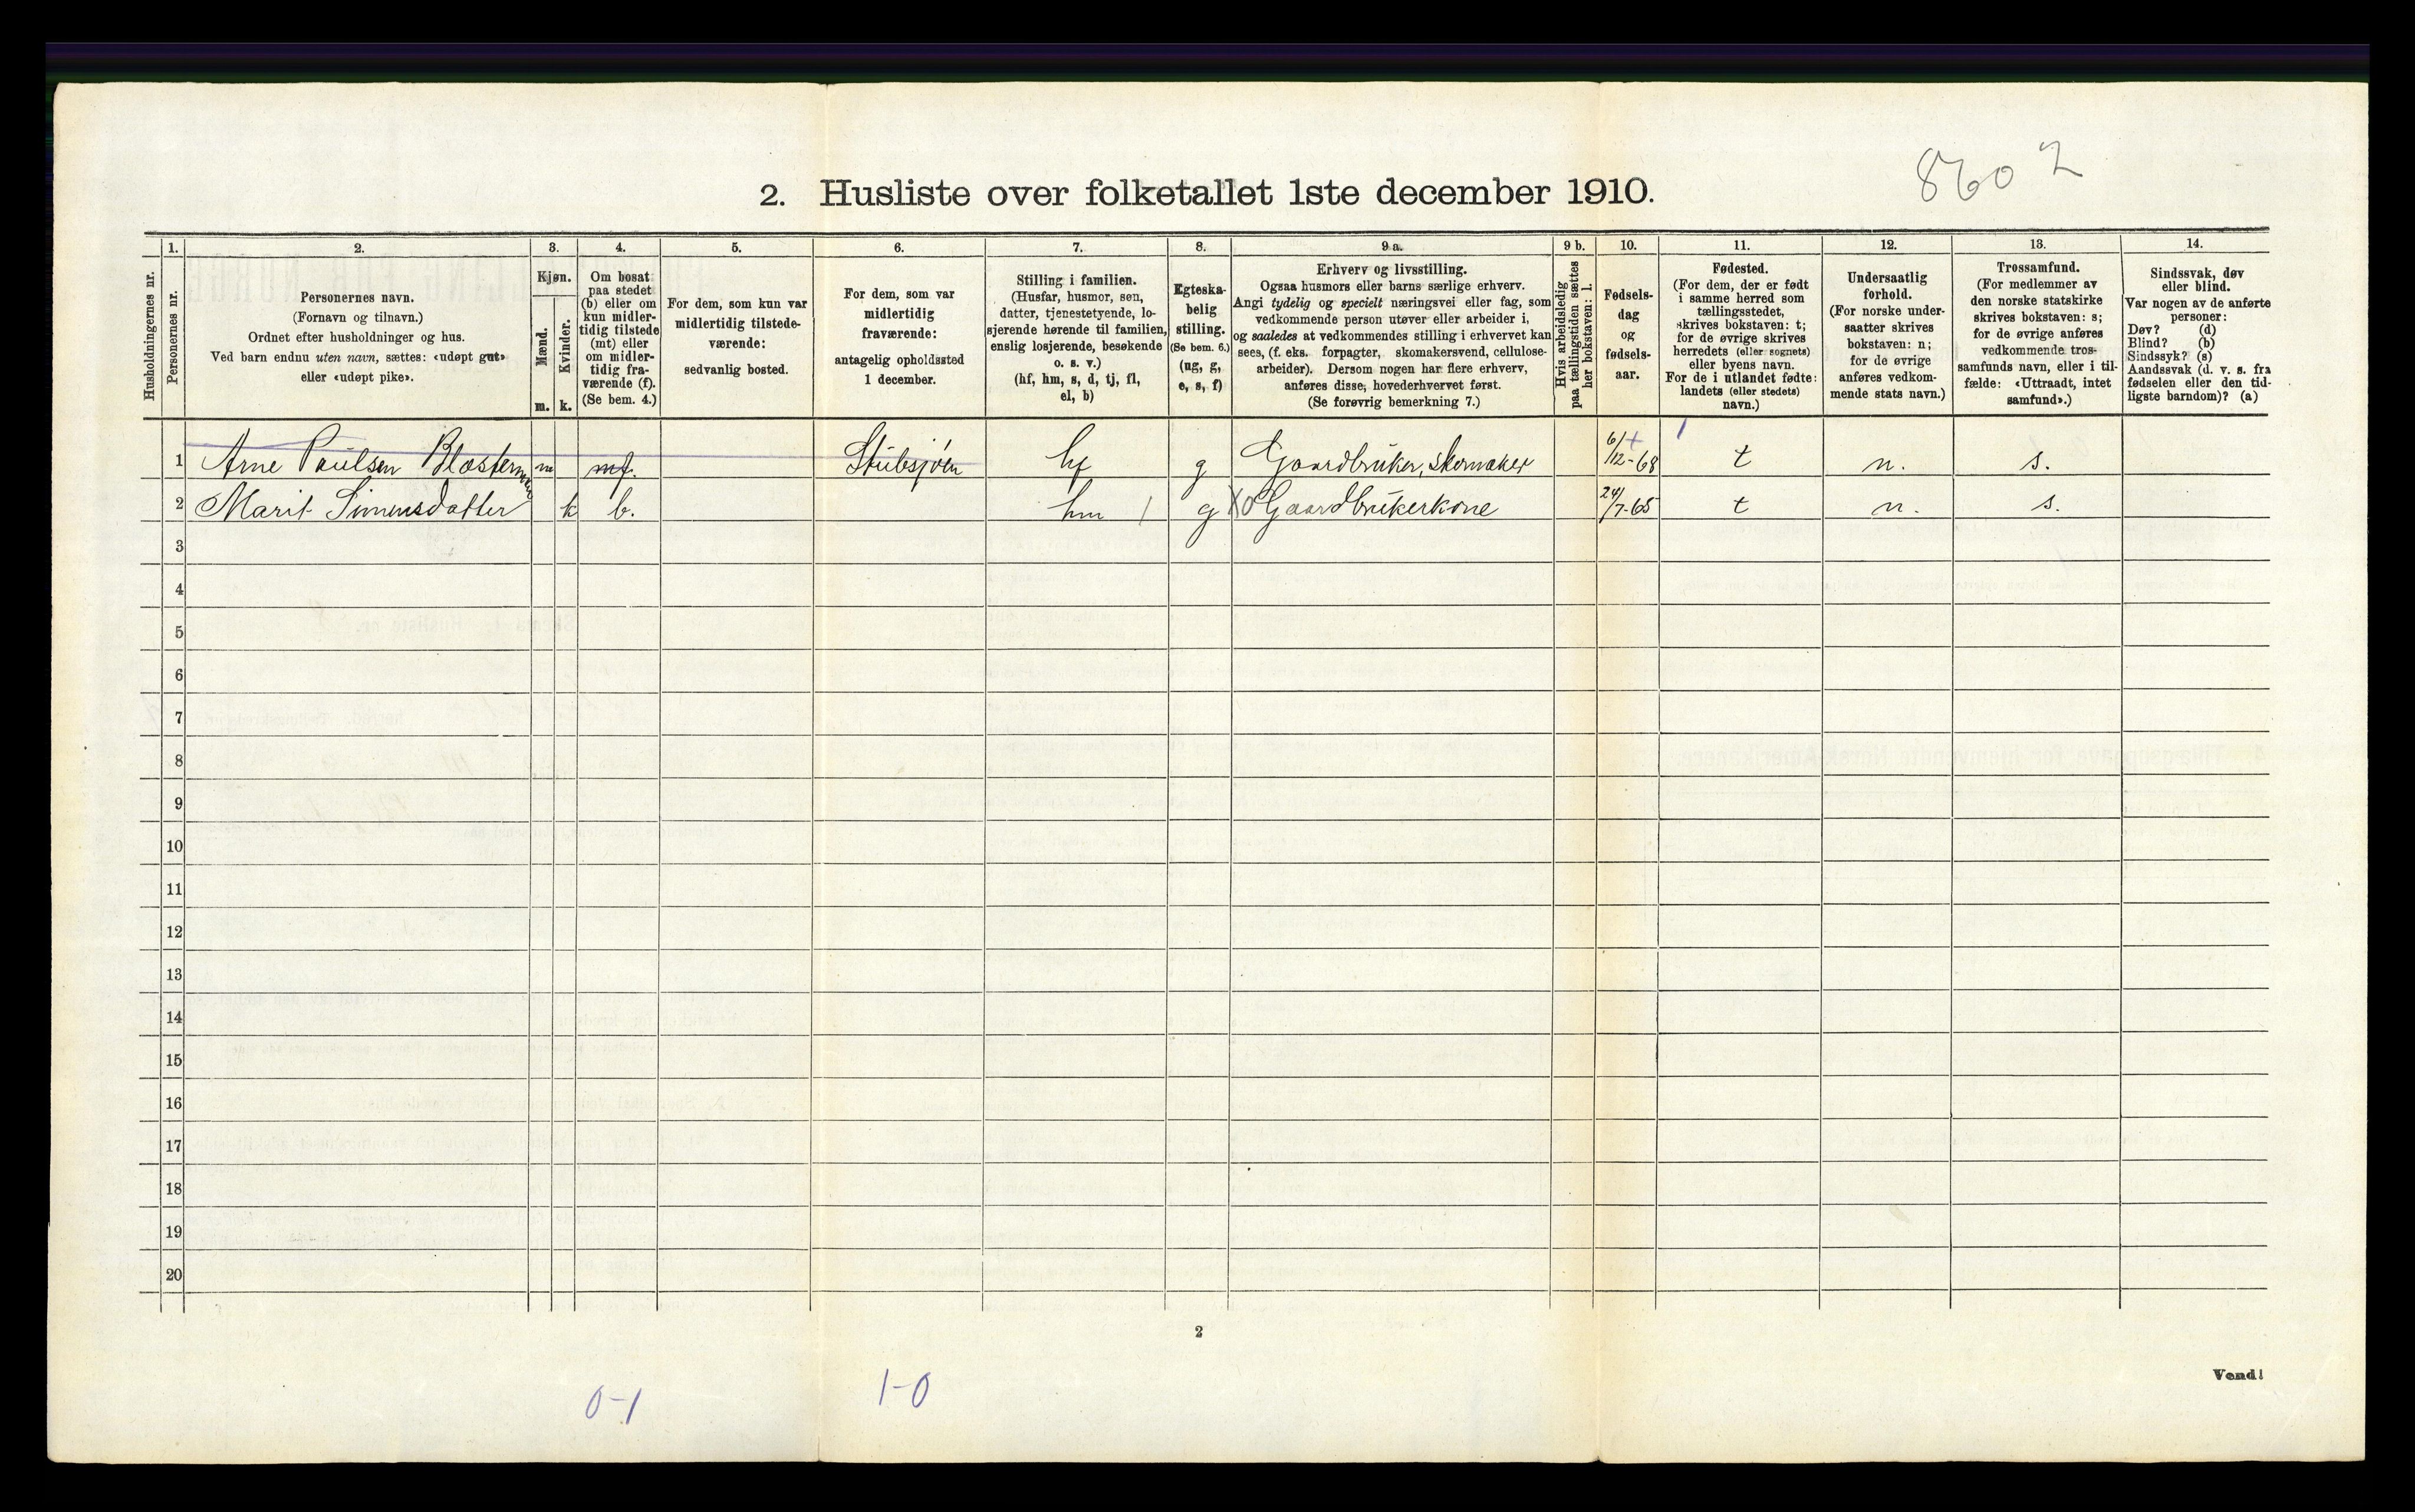 8602
2. Husliste over folketallet 1ste december 1910.
Husholdningernes nr.
1.
Personernes nr.
2.
Personernes navn.
(Fornavn og tilnavn.)
Ordnet efter husholdninger og hus.
Ved barn endnu uten navn, sættes: «udøpt gut»
eller «udøpt pike».
3.
Kjøn.
Mænd.
Kvinder.
m. k.
4.
Om bosat
paa stedet
(b) eller om
kun midler-
tidig tilstede
(mt) eller
om midler-
tidig fra-
værende (f).
(Se bem. 4.)
5.
For dem, som kun var
midlertidig tilstede-
værende:
sedvanlig bosted.
6.
For dem, som var
midlertidig
fraværende:
antagelig opholdssted
1 december.
7.
Stilling i familien.
(Husfar, husmor, søn,
datter, tjenestetyende, lo-
sjerende hørende til familien,
enslig losjerende, besøkende
o. s. v.)
(hf, hm, s, d, tj, fl,
el, b)
8.
Egteska-
belig
stilling.
(Se bem. 6.)
(ug, g,
e, s, f)
9 a.
Erhverv og livsstilling.
Ogsaa husmors eller barns særlige erhverv.
Angi tydelig og specielt næringsvei eller fag, som
vedkommende person utøver eller arbeider i,
og saaledes at vedkommendes stilling i erhvervet kan
sees, (f. eks. forpagter, skomakersvend, cellulose-
arbeider). Dersom nogen har flere erhverv,
anføres disse, hovederhvervet først.
(Se forøvrig bemerkning 7.)
9 b.
Hvis arbeidsledig
paa tællingstiden sættes
her bokstaven: l.
10.
Fødsels-
dag
og
fødsels-
aar.
11.
Fødested.
(For dem, der er født
i samme herred som
tællingsstedet,
skrives bokstaven: t;
for de øvrige skrives
herredets (eller sognets)
eller byens navn.
For de i utlandet fødte:
landets (eller stedets)
navn.)
12.
Undersaatlig
forhold.
(For norske under-
saatter skrives
bokstaven: n;
for de øvrige
anføres vedkom-
mende stats navn.)
13.
Trossamfund.
(For medlemmer av
den norske statskirke
skrives bokstaven: s;
for de øvrige anføres
vedkommende tros-
samfunds navn, eller i til-
fælde: «Uttraadt, intet
samfund».)
14.
Sindssvak, døv
eller blind.
Var nogen av de anførte
personer:
Døv? (d)
Blind? (b)
Sindssyk? (s)
Aandssvak (d. v. s. fra
fødselen eller den tid-
ligste barndom)? (a)
1 Arne Paulsen m mf. Stubsjøen hf g Gaardbruker, Skomaker 6/12-68 t n. s.
2 Marit Simensdatter k b. hm / g X0 Gaardbrukerkone 24/7-65 t n. s.
3
4
5
6
7
8
9
10
11
12
13
14
15
16
17
18
19
20
2
Vend!
0-1
1-0